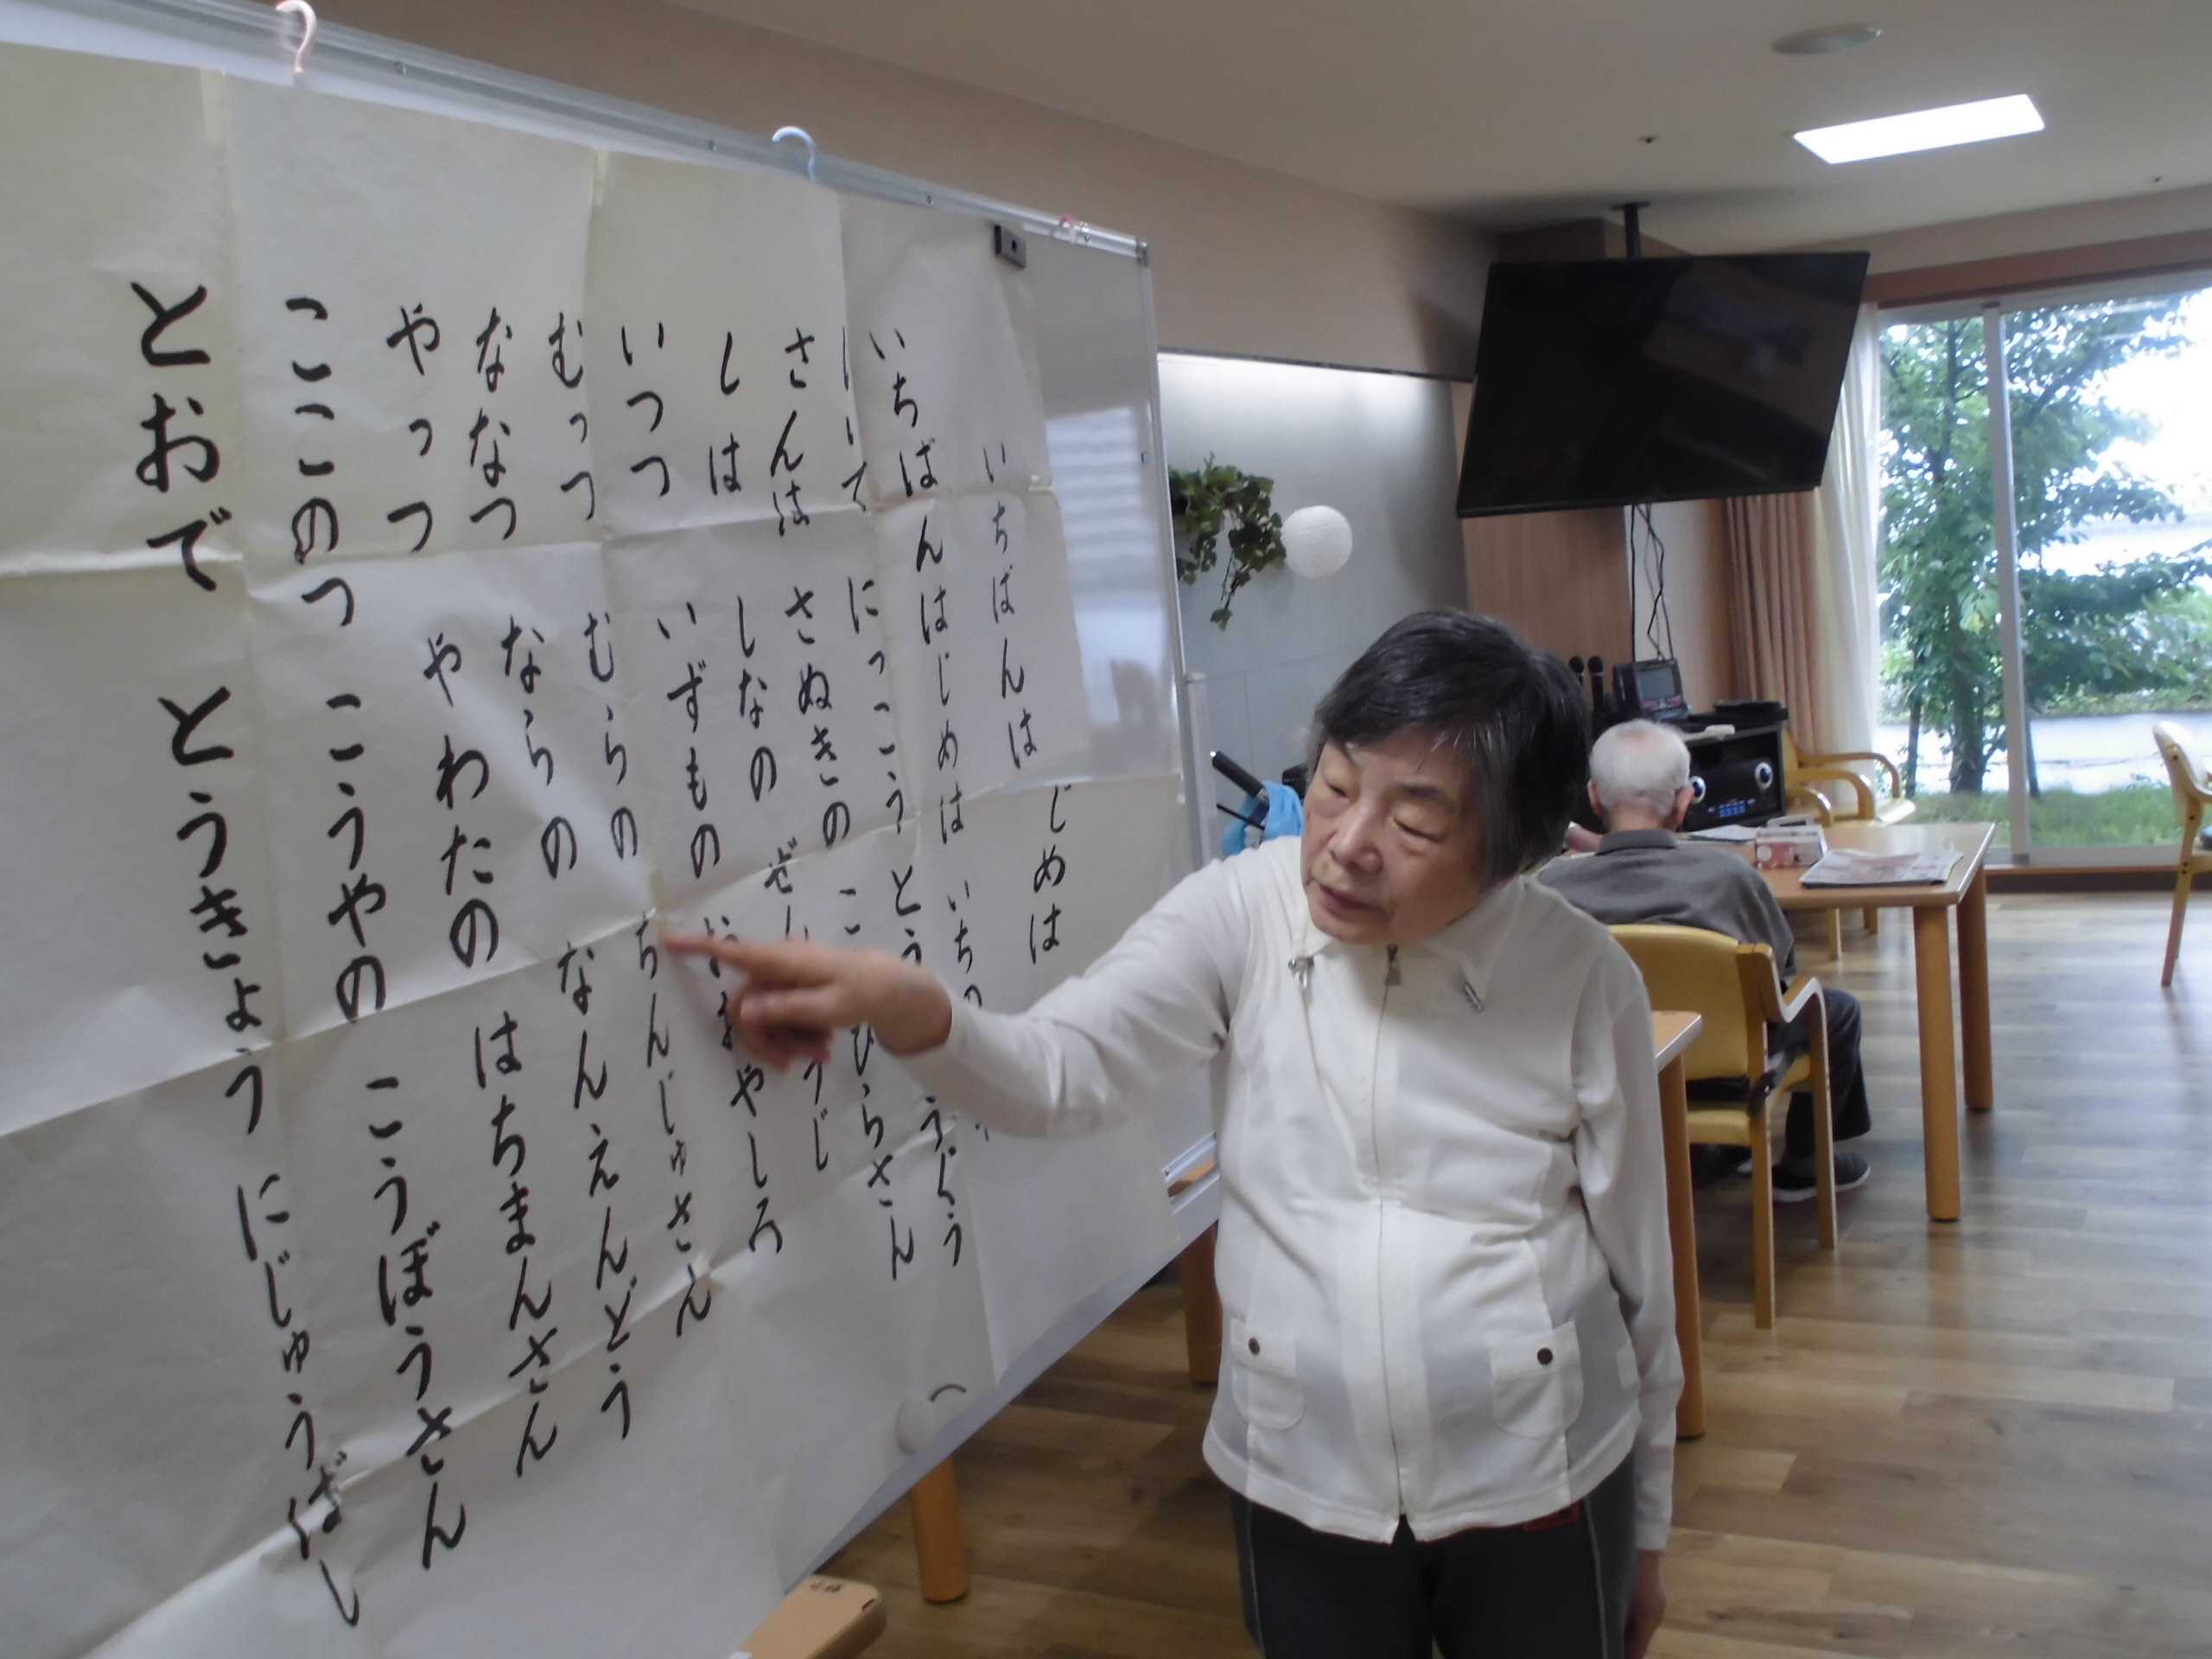 いちばんは じめは
いちばんはじめは いちの
にっこう とう うぐう
さんは さぬきの こ ひらさん
しは しなの ぜん うじ
いつつ いずもの おやしろ
むっつ むらの ちんじゅさん
ななつ ならの なんえんどう
やっつ やわたの はちまんさん
ここのつ こうやの こうぼうさん
とおで とうきょう にじゅうばし